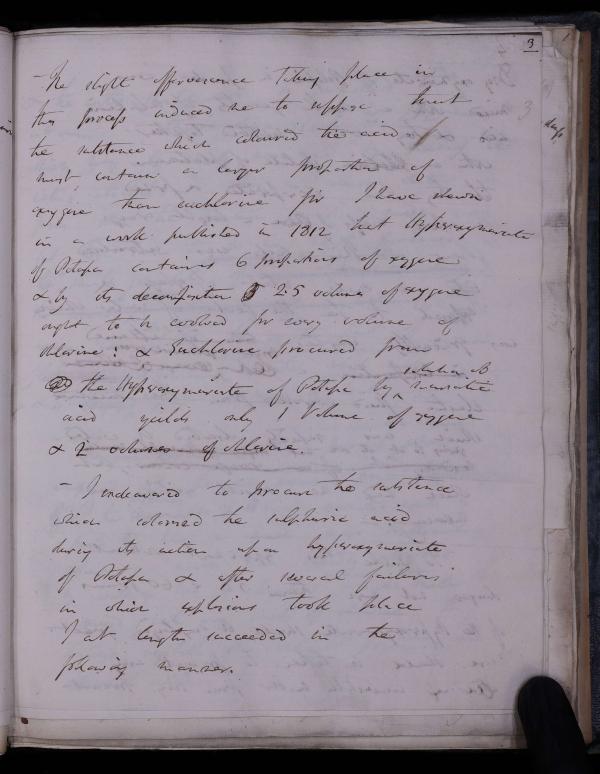 3
- The slight effervescence taking place in
this process induced me to suppose that
the substance which coloured the acid
must contain a larger proportion of
oxygene than euchlorine for I have shewn
in a work published in 1812 that Hyperoxymuriate
of Potassa contains 6 proportions of oxygene
& by its decomposition 2.5 volumes of oxygene
ought to be evolved for every volume of
chlorine: & Euchlorine procured from
the Hyperoxymuriate of Potassa by solution of muriatic
acid yields only 1 Volume of oxygene
& 2 volumes of chlorine.
- I endeavored to procure the substance
which colored the sulphuric acid
during its action upon hyperoxymuriate
of Potassa & after several failures
in which explosions took place
I at length succeeded in the
following manner.